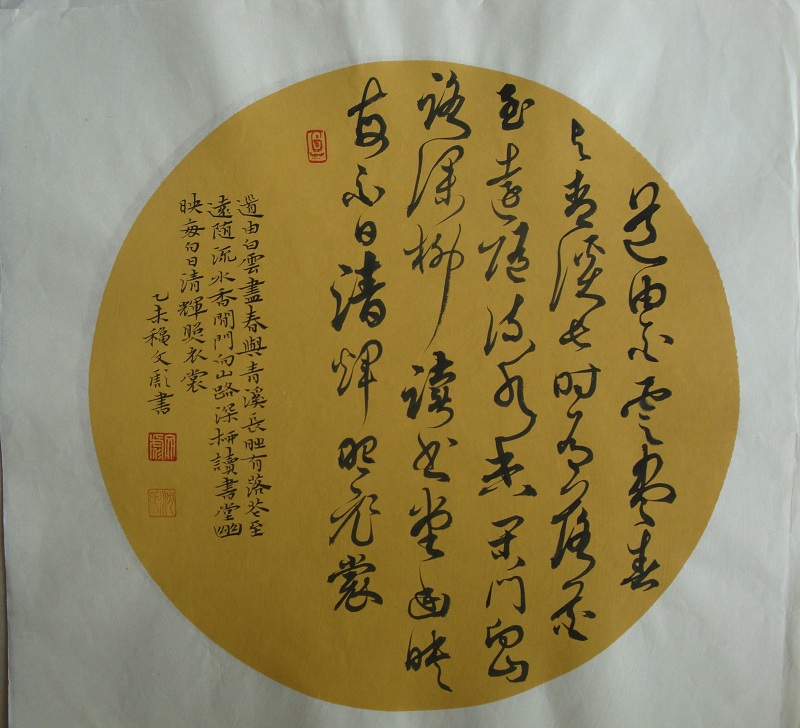 道由白雲盡春
与青溪长时有落花
至遠随流水香闲门向山
路深柳读书堂幽映
每白日清辉照衣裳
道由白雲盡春與青溪長時有落花至
遠隨流水香閒門向山路深柳讀書堂幽
映每白日清輝照衣裳
乙未穐文彪書